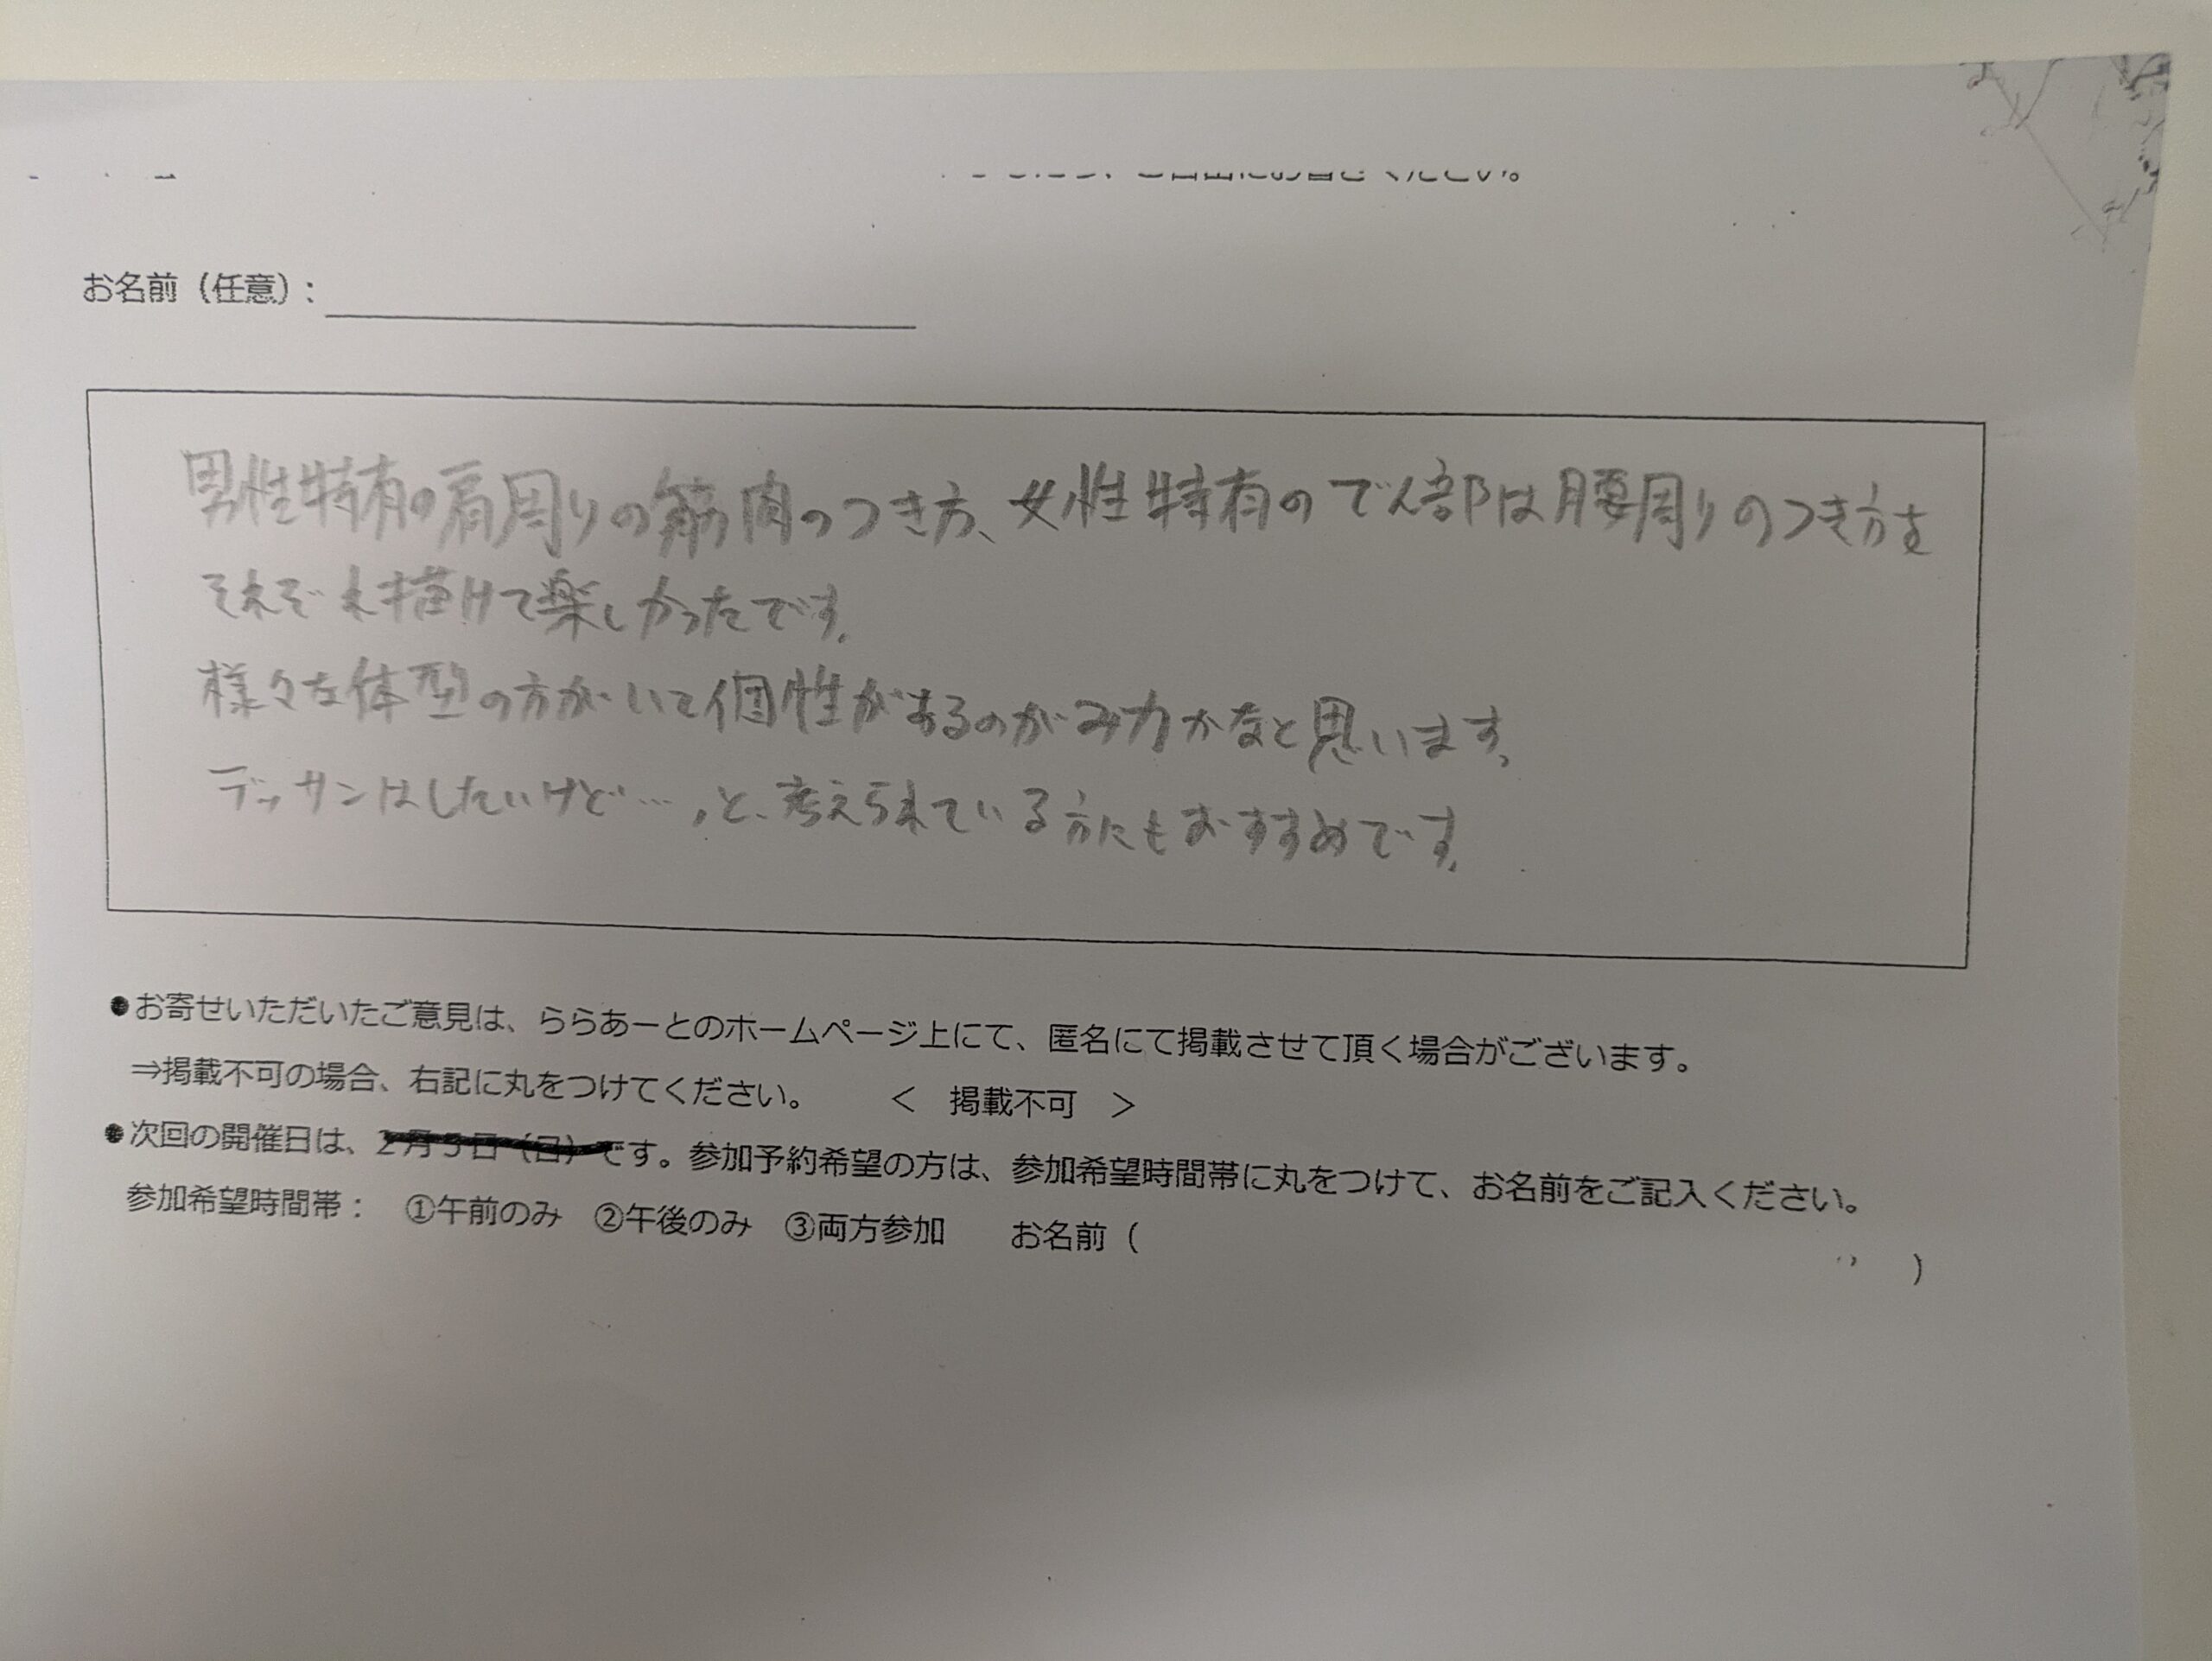 お名前（任意）：
男性特有の肩周りの筋肉のつき方、女性特有のでん部は腰周りのつき方を
それぞれ描けて楽しかったです。
様々な体型の方がいて個性があるのがみ力かなと思います。
デッサンはしたいけど…、と、考えられている方にもおすすめです。
●お寄せいただいたご意見は、ららあーとのホームページ上にて、匿名にて掲載させて頂く場合がございます。
⇒掲載不可の場合、右記に丸をつけてください。　＜　掲載不可　＞
●次回の開催日は、2月5日（日）です。参加予約希望の方は、参加希望時間帯に丸をつけて、お名前をご記入ください。
参加希望時間帯：　①午前のみ　②午後のみ　③両方参加　お名前（　　）